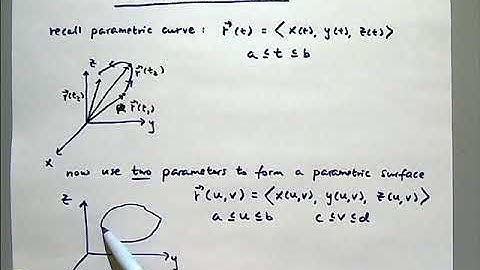 recall parametric curve : r⃗(t) = ⟨ x(t), y(t), z(t) ⟩
a ≤ t ≤ b
z
r⃗(t₂)
r⃗(t₁)
y
x
now use two parameters to form a parametric surface
r⃗(u,v) = ⟨ x(u,v), y(u,v), z(u,v) ⟩
a ≤ u ≤ b c ≤ v ≤ d
z
y